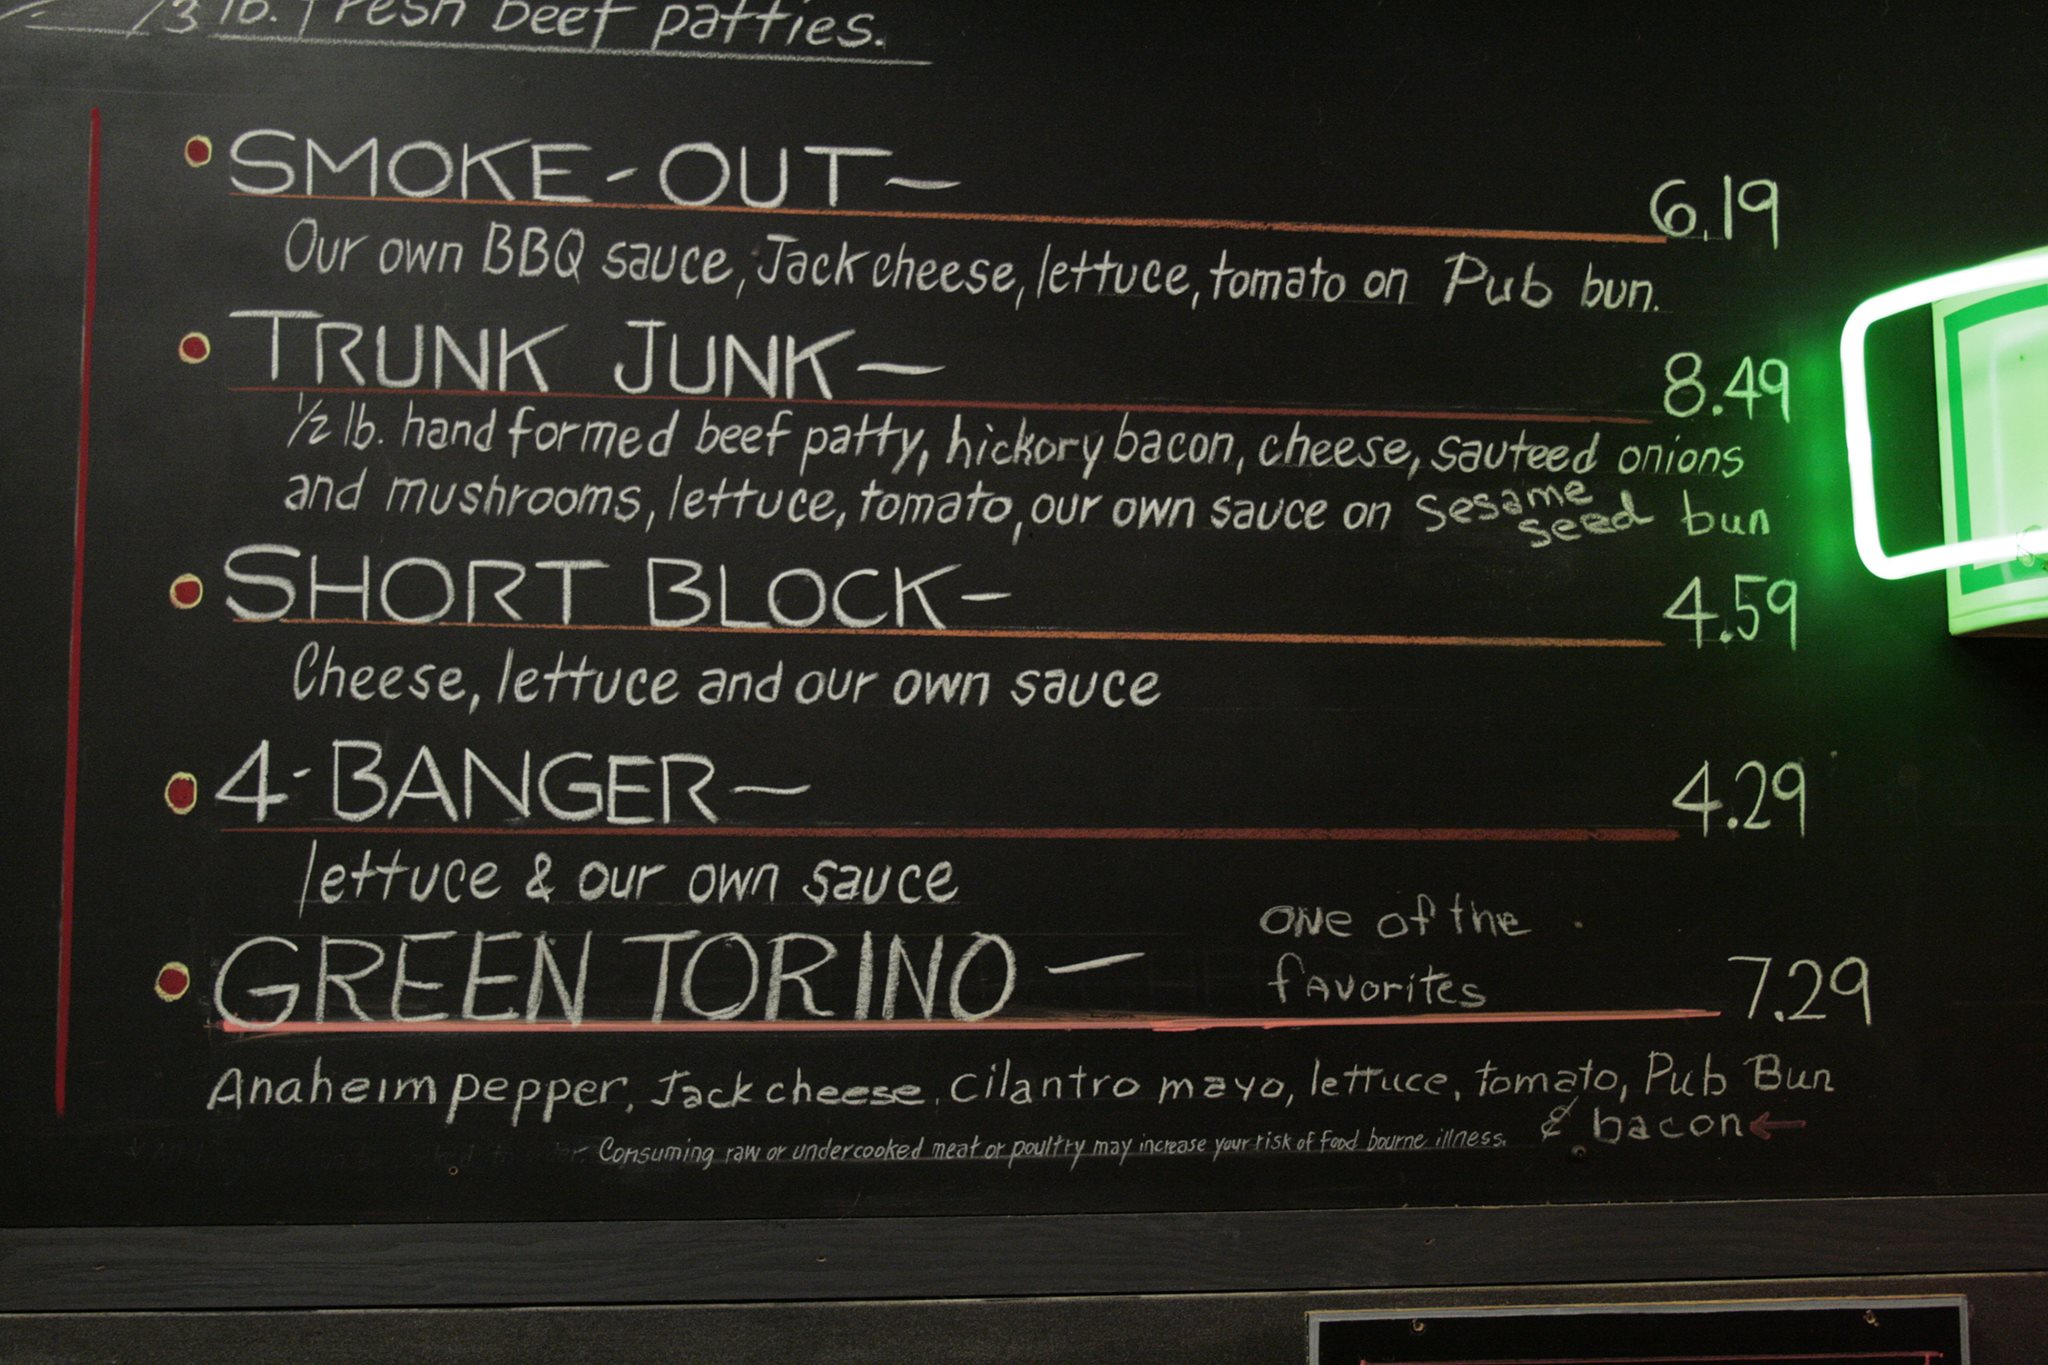 /3 lb. fresh beef patties.
SMOKE-OUT— 6.19
Our own BBQ sauce, Jack cheese, lettuce, tomato on Pub bun.
TRUNK JUNK— 8.49
1/2 lb. hand formed beef patty, hickory bacon, cheese, sauteed onions
and mushrooms, lettuce, tomato, our own sauce on sesame seed bun
SHORT BLOCK— 4.59
Cheese, lettuce and our own sauce
4-BANGER— 4.29
lettuce & our own sauce
one of the
favorites
GREEN TORINO— 7.29
Anaheim pepper, Jack cheese, Cilantro mayo, lettuce, tomato, Pub Bun
& bacon←
Consuming raw or undercooked meat or poultry may increase your risk of food bourne illness.